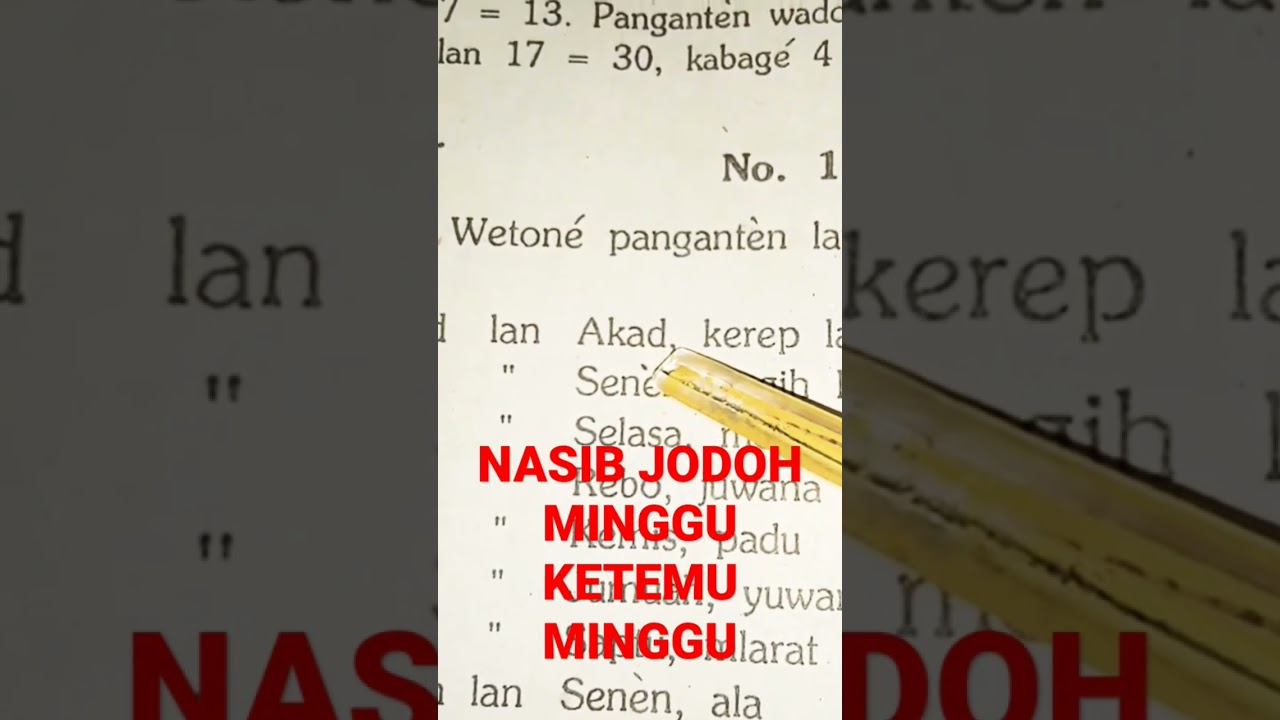 7 = 13. Panganten wado
lan 17 = 30, kabagé 4
No. 1
Wetoné pangantèn la
lan Akad, kerep la
" Senè
" Selasa,
Rebo, juwana
" Kemis, padu
" Jumuah, yuwa
" Saptu, mlarat
lan Senèn, ala
NASIB JODOH
MINGGU
KETEMU
MINGGU